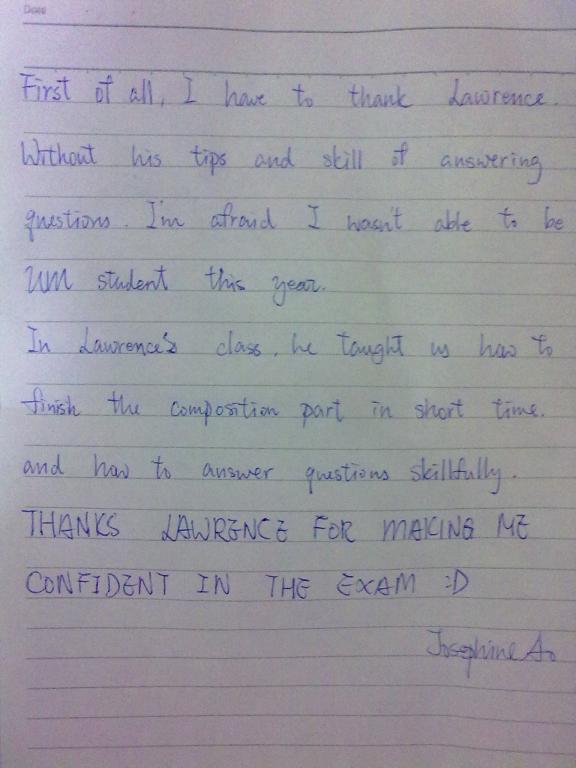 Date
First of all, I have to thank Lawrence.
Without his tips and skill of answering
questions. I'm afraid I wasn't able to be
UM student this year.
In Lawrence's class, he taught us how to
finish the composition part in short time.
and how to answer questions skillfully.
THANKS LAWRENCE FOR MAKING ME
CONFIDENT IN THE EXAM :D
Josephine Ao